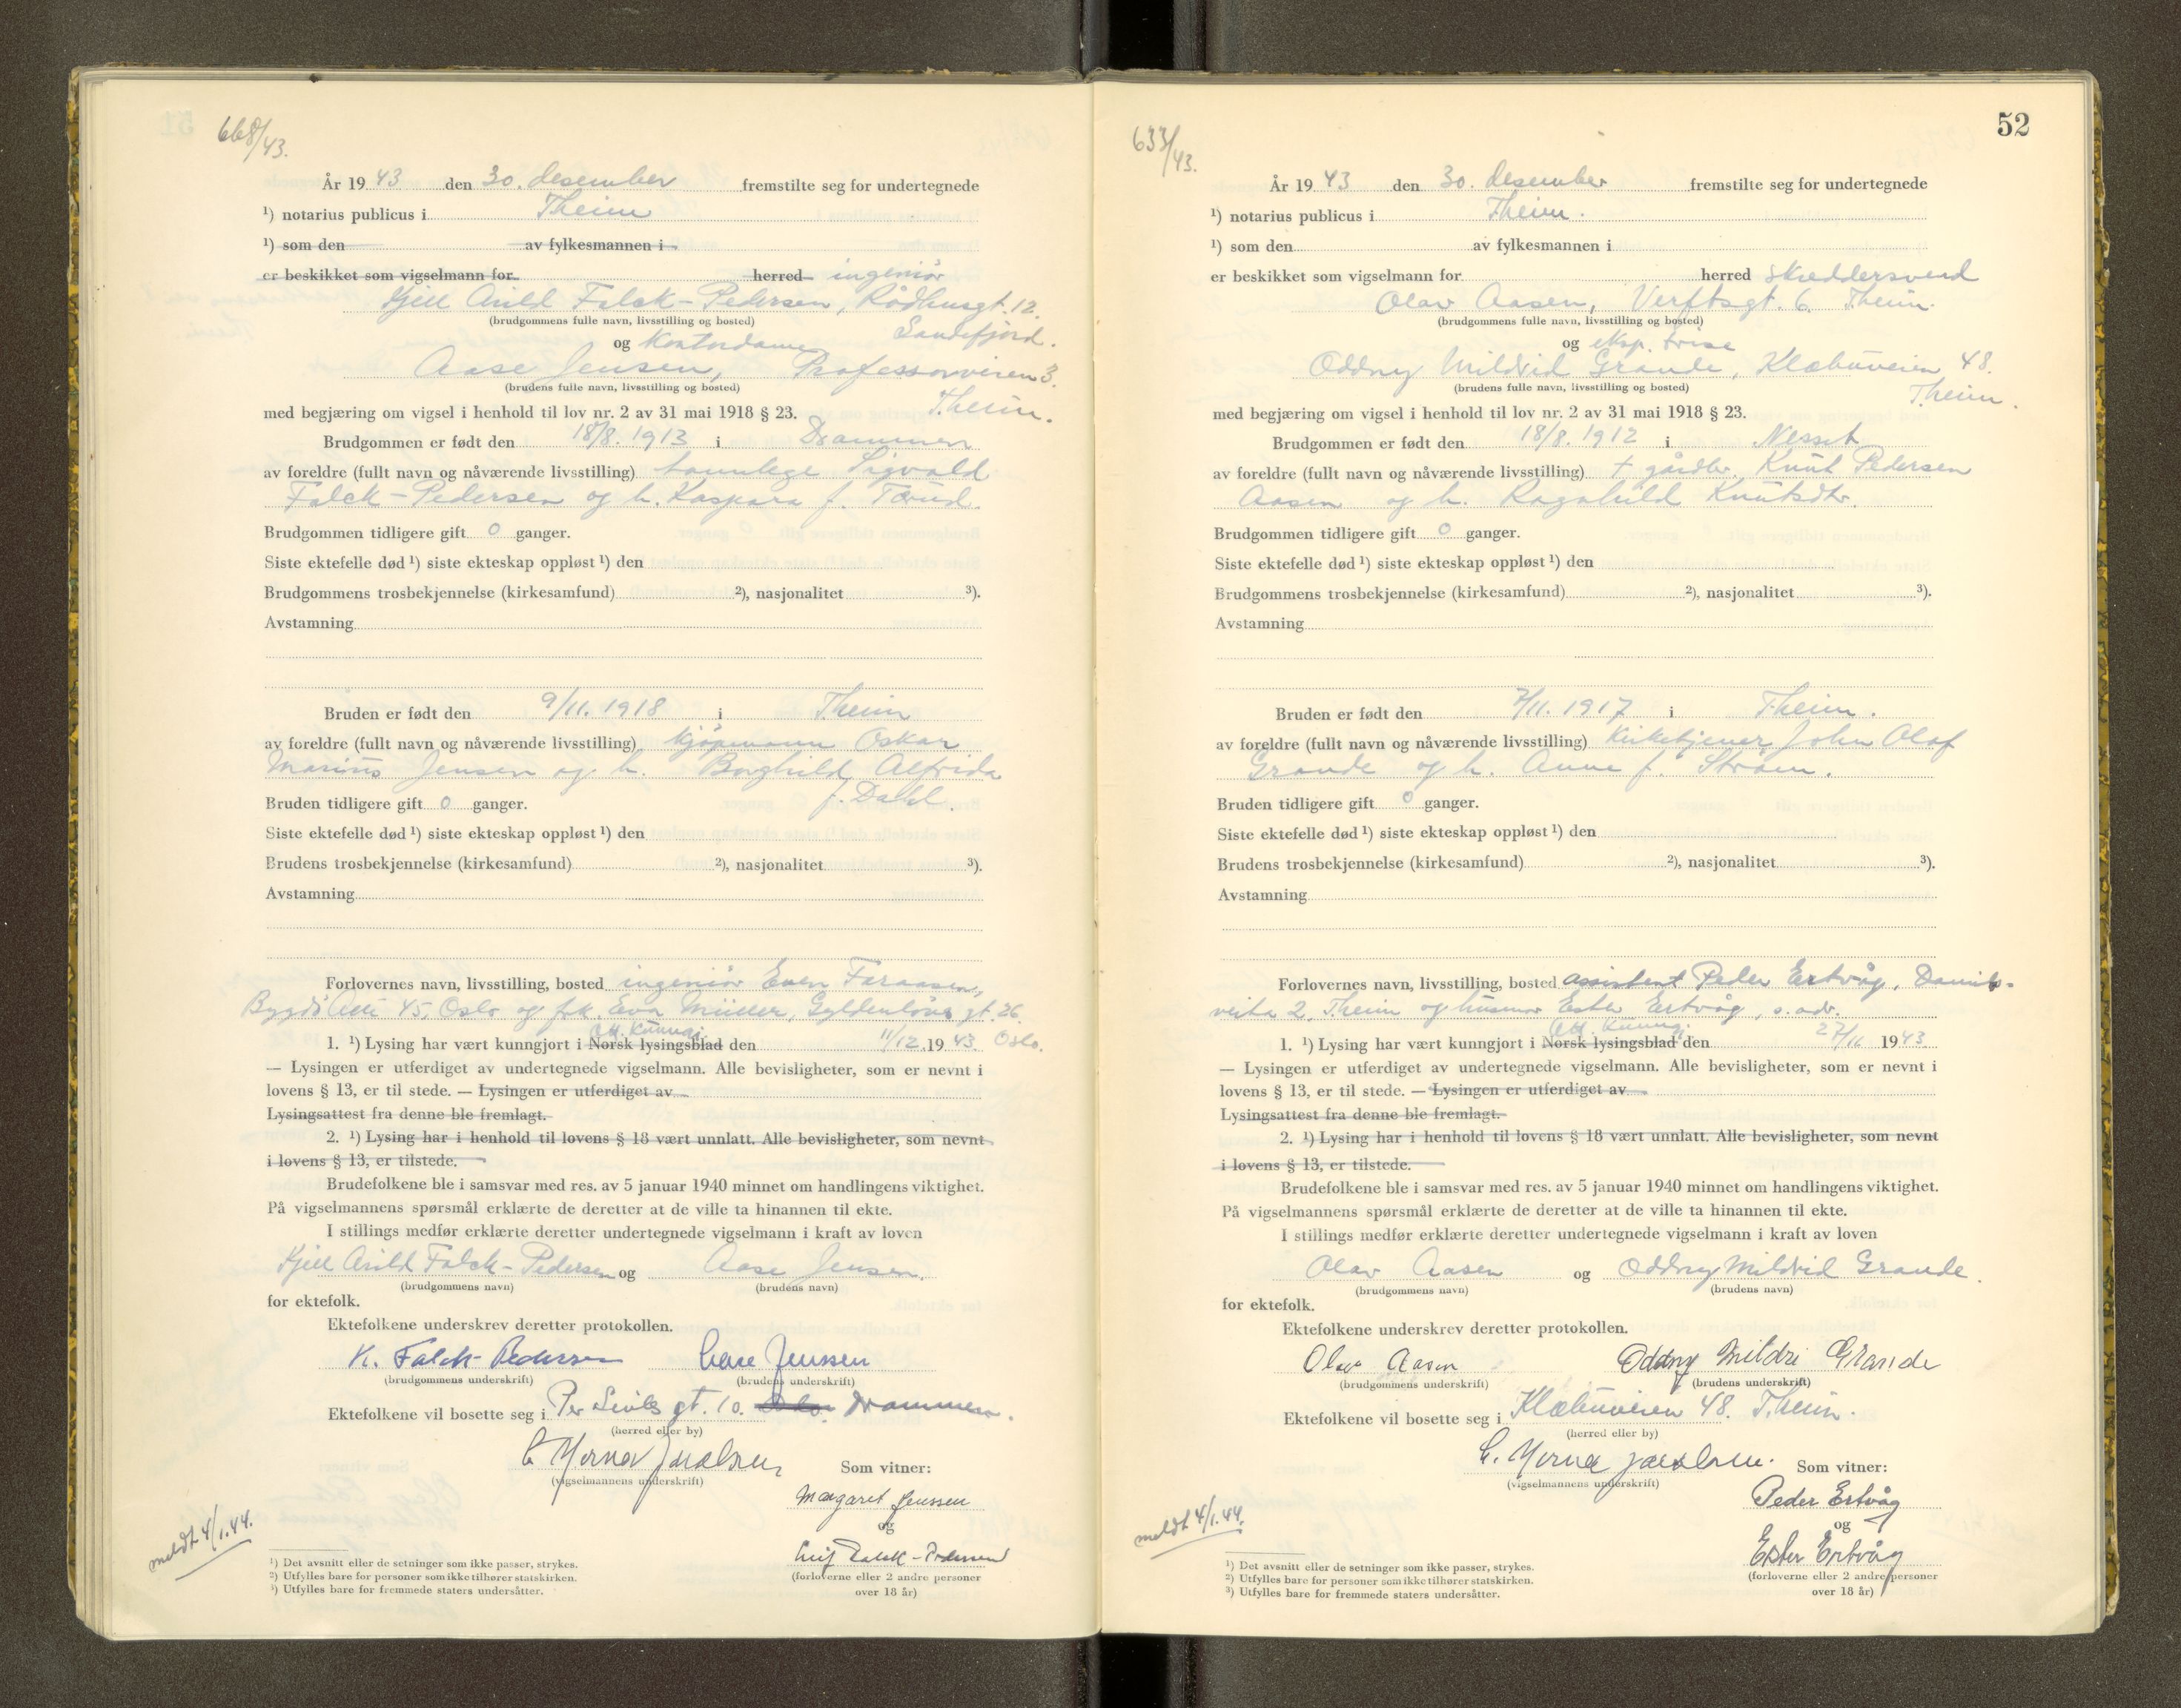 668/43.
År 1943 den 30. desember fremstilte seg for undertegnede
¹) notarius publicus i Theim
¹) som den av fylkesmannen i
er beskikket som vigselmann for herred ingeniör
Kjell Arild Falck-Pedersen, Rådhusgt. 12.
(brudgommens fulle navn, livsstilling og bosted) Sandefjord.
og Kontordame
Aase Jensen, Professorveien 3.
(brudens fulle navn, livsstilling og bosted)
Theim.
med begjæring om vigsel i henhold til lov nr. 2 av 31 mai 1918 § 23.
Brudgommen er født den 18/8. 1913 i Drammen
av foreldre (fullt navn og nåværende livsstilling) tannlege Sigvald
Falck-Pedersen og h. Kaspara f.
Brudgommen tidligere gift 0 ganger.
Siste ektefelle død ¹) siste ekteskap oppløst ¹) den
Brudgommens trosbekjennelse (kirkesamfund) ²), nasjonalitet ³).
Avstamning
Bruden er født den 9/11. 1918 i Theim
av foreldre (fullt navn og nåværende livsstilling) kjöpmann Oskar
Marius Jensen og h. Borghild Alfrida
f. Dahl.
Bruden tidligere gift 0 ganger.
Siste ektefelle død ¹) siste ekteskap oppløst ¹) den
Brudens trosbekjennelse (kirkesamfund) ²), nasjonalitet ³).
Avstamning
Forlovernes navn, livsstilling, bosted ingeniör Even
Bygdö Allé 45, Oslo og frk. Eva Müller, Gyldenlöves gt. 26.
Oslo.
1. ¹) Lysing har vært kunngjort i Norsk lysingsblad den 11/12. 1943.
— Lysingen er utferdiget av undertegnede vigselmann. Alle bevisligheter, som er nevnt i
lovens § 13, er til stede. — Lysingen er utferdiget av
Lysingsattest fra denne ble fremlagt.
2. ¹) Lysing har i henhold til lovens § 18 vært unnlatt. Alle bevisligheter, som nevnt
i lovens § 13, er tilstede.
Brudefolkene ble i samsvar med res. av 5 januar 1940 minnet om handlingens viktighet.
På vigselmannens spørsmål erklærte de deretter at de ville ta hinannen til ekte.
I stillings medfør erklærte deretter undertegnede vigselmann i kraft av loven
Kjell Arild Falck-Pedersen og Aase Jensen.
(brudgommens navn) (brudens navn)
for ektefolk.
Ektefolkene underskrev deretter protokollen.
K. Falck-Pedersen Aase Jenssen
(brudgommens underskrift) (brudens underskrift)
Ektefolkene vil bosette seg i Per Sivles gt. 10. Oslo. Drammen.
(herred eller by)
(vigselmannens underskrift)
Som vitner:
Margaret Jenssen
og
Leif Falck-Pedersen
(forloverne eller 2 andre personer
over 18 år)
meldt 4/1.44.
¹) Det avsnitt eller de setninger som ikke passer, strykes.
²) Utfylles bare for personer som ikke tilhører statskirken.
³) Utfylles bare for fremmede staters undersåtter.
52
633/43.
År 1943 den 30. desember fremstilte seg for undertegnede
¹) notarius publicus i Theim.
¹) som den av fylkesmannen i
er beskikket som vigselmann for herred skreddersvend
Olav Aasen, Verftsgt. 6. Theim.
(brudgommens fulle navn, livsstilling og bosted)
og eksp. trise
Oddny Mildrid Grande, Klæbuveien 48.
(brudens fulle navn, livsstilling og bosted)
Theim.
med begjæring om vigsel i henhold til lov nr. 2 av 31 mai 1918 § 23.
Brudgommen er født den 18/8. 1912 i Nesset
av foreldre (fullt navn og nåværende livsstilling) † gårdbr. Knut Pedersen
Aasen og h. Ragnhild Knutsdtr.
Brudgommen tidligere gift 0 ganger.
Siste ektefelle død ¹) siste ekteskap oppløst ¹) den
Brudgommens trosbekjennelse (kirkesamfund) ²), nasjonalitet ³).
Avstamning
Bruden er født den 7/11. 1917 i Theim.
av foreldre (fullt navn og nåværende livsstilling) Kirketjener John Olaf
Grande og h. Anna f. Ström.
Bruden tidligere gift 0 ganger.
Siste ektefelle død ¹) siste ekteskap oppløst ¹) den
Brudens trosbekjennelse (kirkesamfund) ²), nasjonalitet ³).
Avstamning
Forlovernes navn, livsstilling, bosted assistent Peder Ertvåg,
veita 2, Theim og husmor Ester Ertvåg, s. adr.
1. ¹) Lysing har vært kunngjort i Norsk lysingsblad den 27/11 1943
— Lysingen er utferdiget av undertegnede vigselmann. Alle bevisligheter, som er nevnt i
lovens § 13, er til stede. — Lysingen er utferdiget av
Lysingsattest fra denne ble fremlagt.
2. ¹) Lysing har i henhold til lovens § 18 vært unnlatt. Alle bevisligheter, som nevnt
i lovens § 13, er tilstede.
Brudefolkene ble i samsvar med res. av 5 januar 1940 minnet om handlingens viktighet.
På vigselmannens spørsmål erklærte de deretter at de ville ta hinannen til ekte.
I stillings medfør erklærte deretter undertegnede vigselmann i kraft av loven
Olav Aasen og Oddny Mildrid Grande.
(brudgommens navn) (brudens navn)
for ektefolk.
Ektefolkene underskrev deretter protokollen.
Olav Aasen Oddny Mildri Grande
(brudgommens underskrift) (brudens underskrift)
Ektefolkene vil bosette seg i Klæbuveien 48. Theim.
(herred eller by)
(vigselmannens underskrift)
Som vitner:
Peder Ertvåg
og
Ester Ertvåg
(forloverne eller 2 andre personer
over 18 år)
meldt 4/1.44.
¹) Det avsnitt eller de setninger som ikke passer, strykes.
²) Utfylles bare for personer som ikke tilhører statskirken.
³) Utfylles bare for fremmede staters undersåtter.